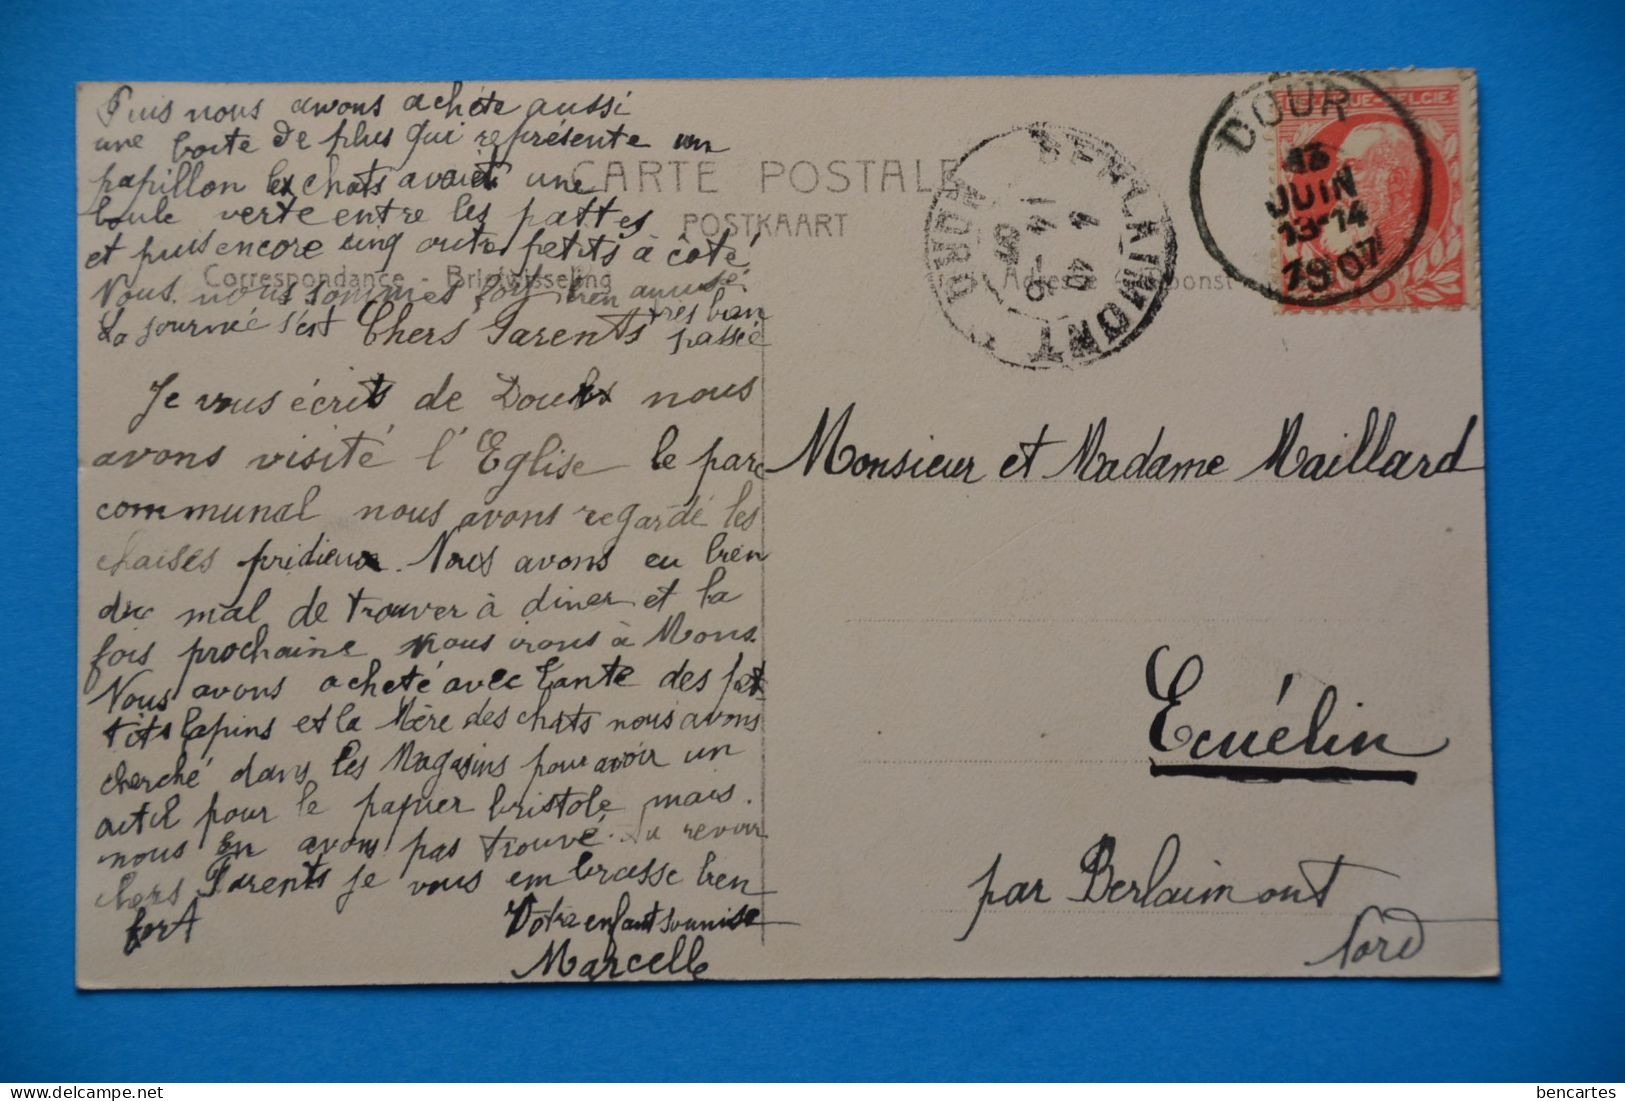 Puis nous avons achete aussi
une boite de plus qui représente un
papillon les chats avait une
boule verte entre les pattes
et puis encore cinq autre petits à côté
Nous nous sommes fort bien amusé
La journeé s'est très bien
passée
CARTE POSTALE
POSTKAART
Correspondance - Briefwisseling
Adresse - Adresse
Chers Parents
Je vous écrits de Dour nous
avons visité l'Eglise le parc
communal nous avons regardé les
chaises pridieux. Nous avons eu bien
du mal de trouver à diner et la
fois prochaine nous irons à Mons.
Nous avons acheté avec Tante des pet
tits lapins et la Mère des chats nous avons
cherché dans les Magasins pour avoir un
outil pour le papier bristole mais.
nous en avons pas trouvé. Au revoir
chers Parents je vous embrasse bien
fort
Votre enfant soumise
Marcelle
Monsieur et Madame Maillard
Ecuélin
par Berlaimont
Nord
DOUR
13
JUIN
13-14
1907
BERLAIMONT
NORD
14
bencartes